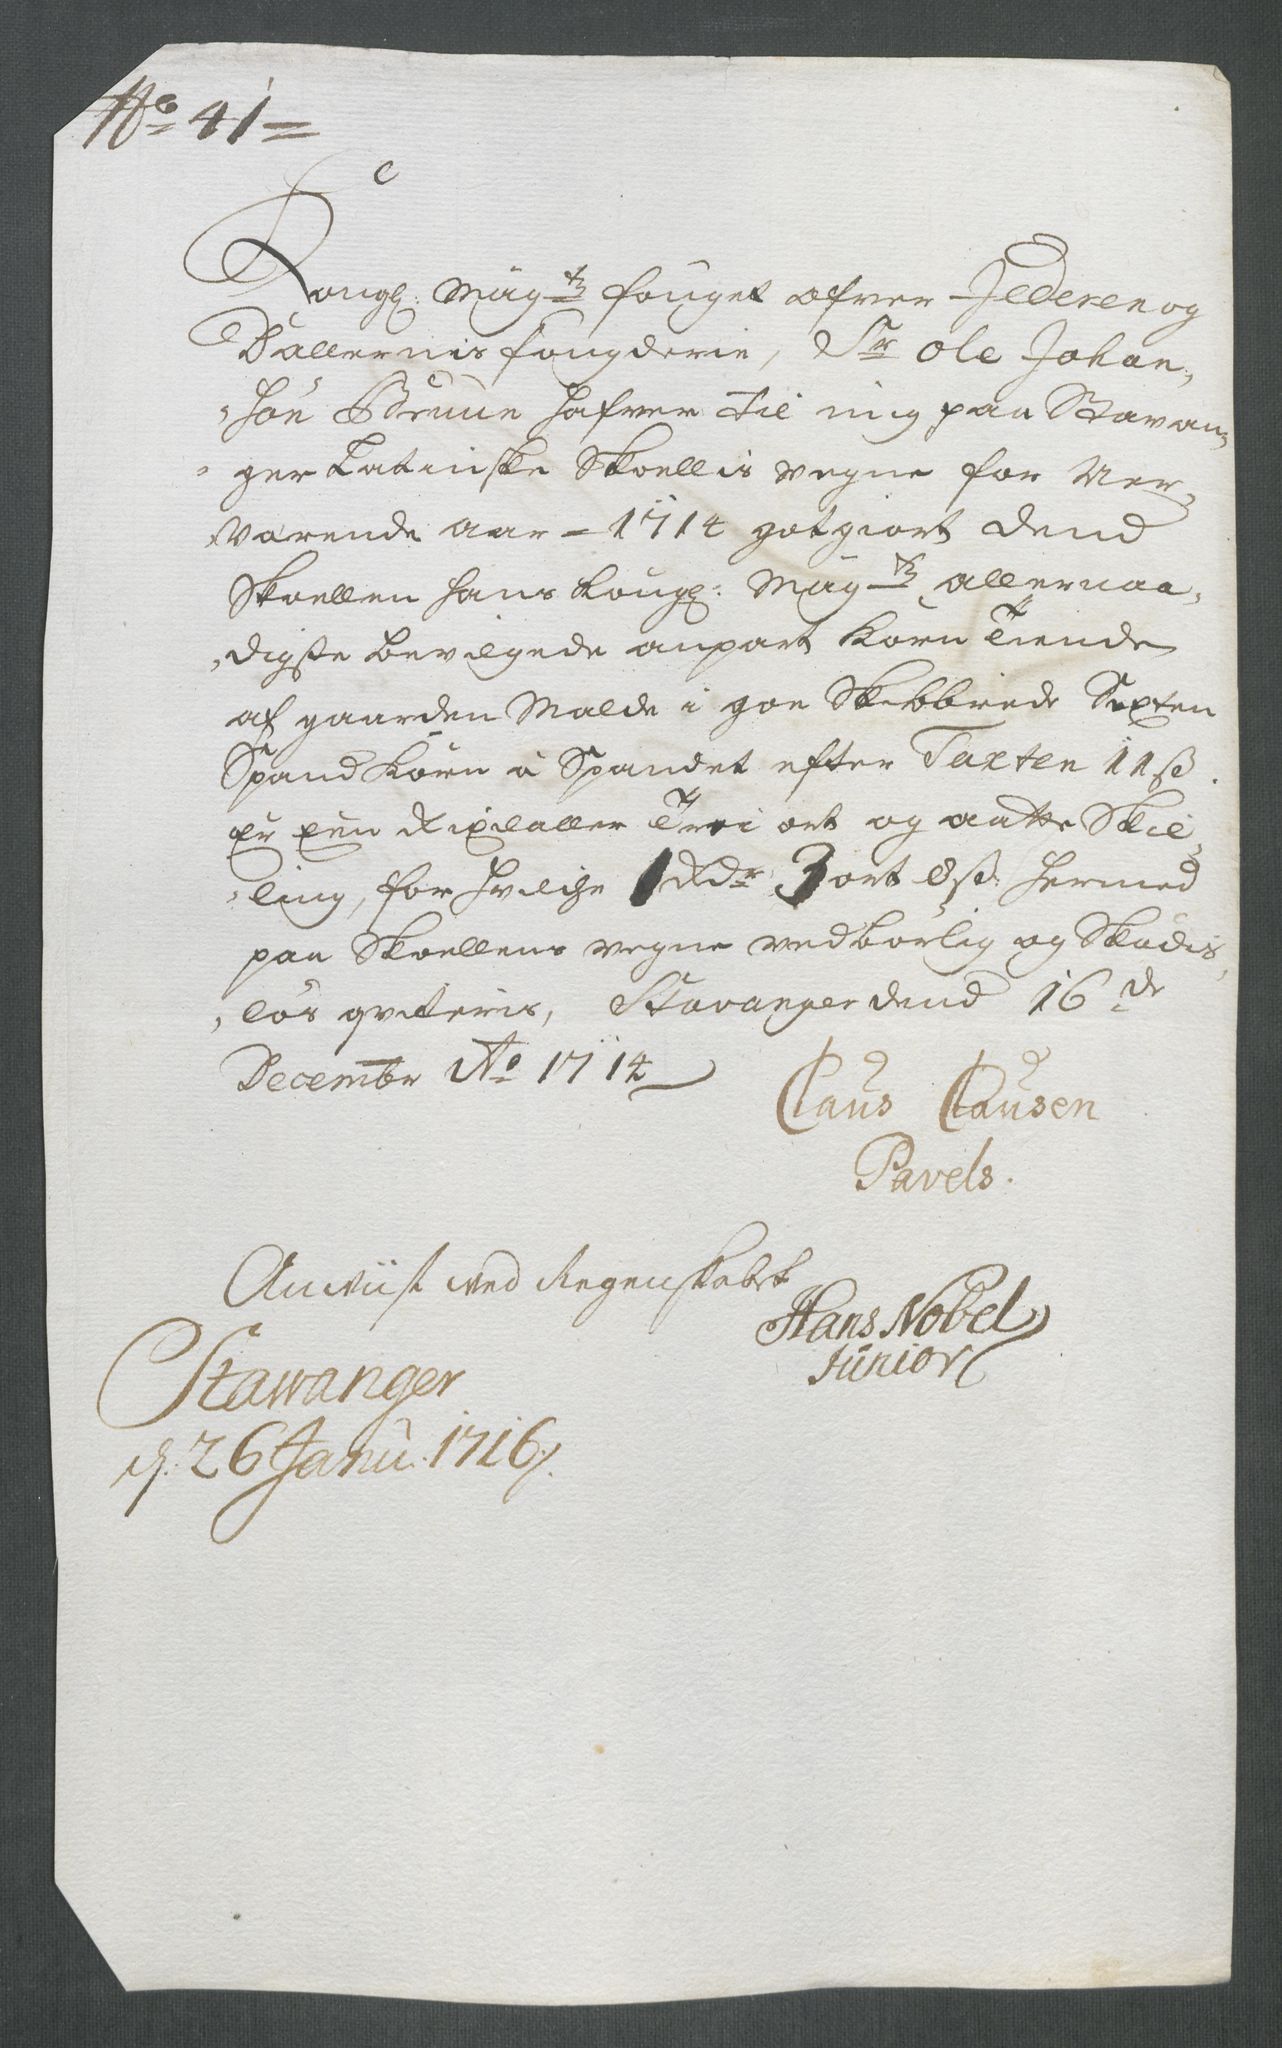 No 41 =
Kongl: Mayts fouget ofver Jederen og
Dallernis fougderie, Sr Ole Johan,
,søn Bruun hafver til mig paa Stavan,
,ger Latinske Skoellis vegne for Ner,
,værende aar = 1714 gotgiort dend
Skoellen hans Kongl: Mayts allernaa,
,digste bevilgede anpart Korn Tiende
af gaarden Malde i Skibbrede Sexten
Spand Korn à Spandet efter Taxten 11 ß.
er Een Rixdaller Trei ort og aatte Skil,
,ling, for hvilche 1 Rdr 3 ort 8 ß. hermed
paa Skoellens vegne vedbørlig og Skadis,
,løs qviteris, Stavanger dend 16de
Decembr Ao 1714
Claus Clausen
Pavels.
Anviist ved Regenskabet
Hans Nobel
Junior
Stawanger
d. 26 Janu. 1716